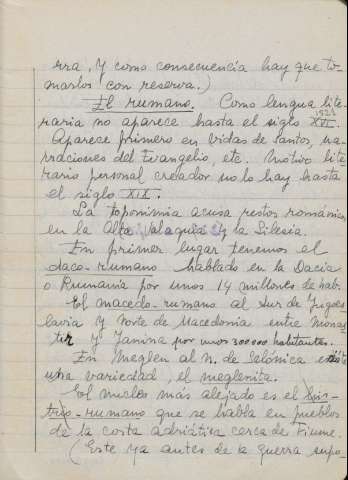 rra. Y como consecuencia hay que to-
marlos con reserva.)
El rumano. Como lengua lite-
raria no aparece hasta el siglo XVI. 1521
Aparece primero en Vidas de Santos, na-
rraciones del Evangelio, etc. Motivo lite-
rario personal creador no lo hay hasta
el siglo XIX.
La toponimia acusa restos románicos
en la Alta Valaquia y la Silesia.
En primer lugar tenemos el
daco-rumano hablado en la Dacia
o Rumanía por unos 14 millones de hab.
El macedo-rumano al Sur de Yugoes-
lavia y Norte de Macedonia entre Monas-
tir y Janina por unos 300000 habitantes.
En Meglen al N. de Salónica existe
una variedad, el meglenita.
El núcleo más alejado es el Ist-
rio-rumano que se habla en pueblos
de la costa adriática cerca de Fiume.
(Este ya antes de la guerra supo-